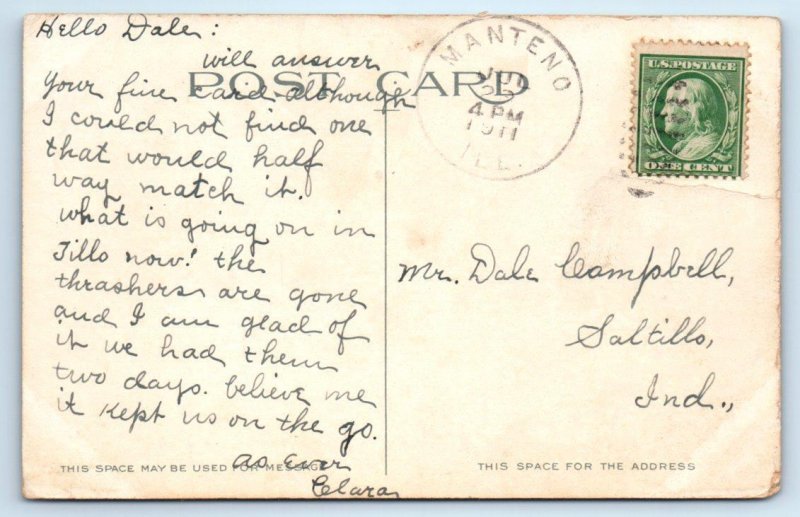 Hello Dale:
will answer
POST CARD
Your fine card although
I could not find one
that would half
way match it.
what is going on in
Tillo now! the
thrashers are gone
and I am glad of
it we had them
two days. believe me
it kept us on the go.
as ever
Clara
THIS SPACE MAY BE USED FOR MESSAGE
MANTENO
4 PM
1911
ILL.
U.S. POSTAGE
ONE CENT
Mr. Dale Campbell,
Saltillo,
Ind.,
THIS SPACE FOR THE ADDRESS